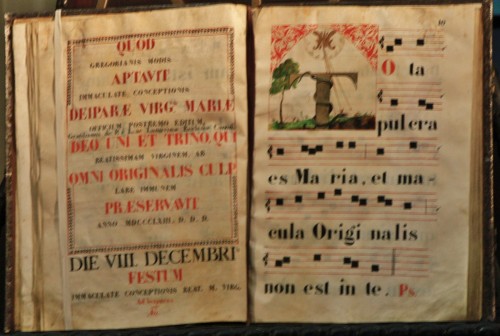 QUOD
GREGORIANIS MODIS
APTAVIT
IMMACULATE CONCEPTIONIS
DEIPARÆ VIRGs MARIÆ
OFFICIUM POSTREMO EDITUM,
DEO UNI ET TRINO, QUI
BEATISSIMAM VIRGINEM, AB
OMNI ORIGINALIS CULP
LABE IMMUNEM
PRÆSERVAVIT
ANNO MDCCCLXIII. D. D. D.
DIE VIII. DECEMBRI
FESTUM
IMMACULATE CONCEPTIONIS BEAT. M. VIRG.
10
T
O ta
pulcra
es Ma ria, et ma-
cula Origi nalis
non est in te. Ps